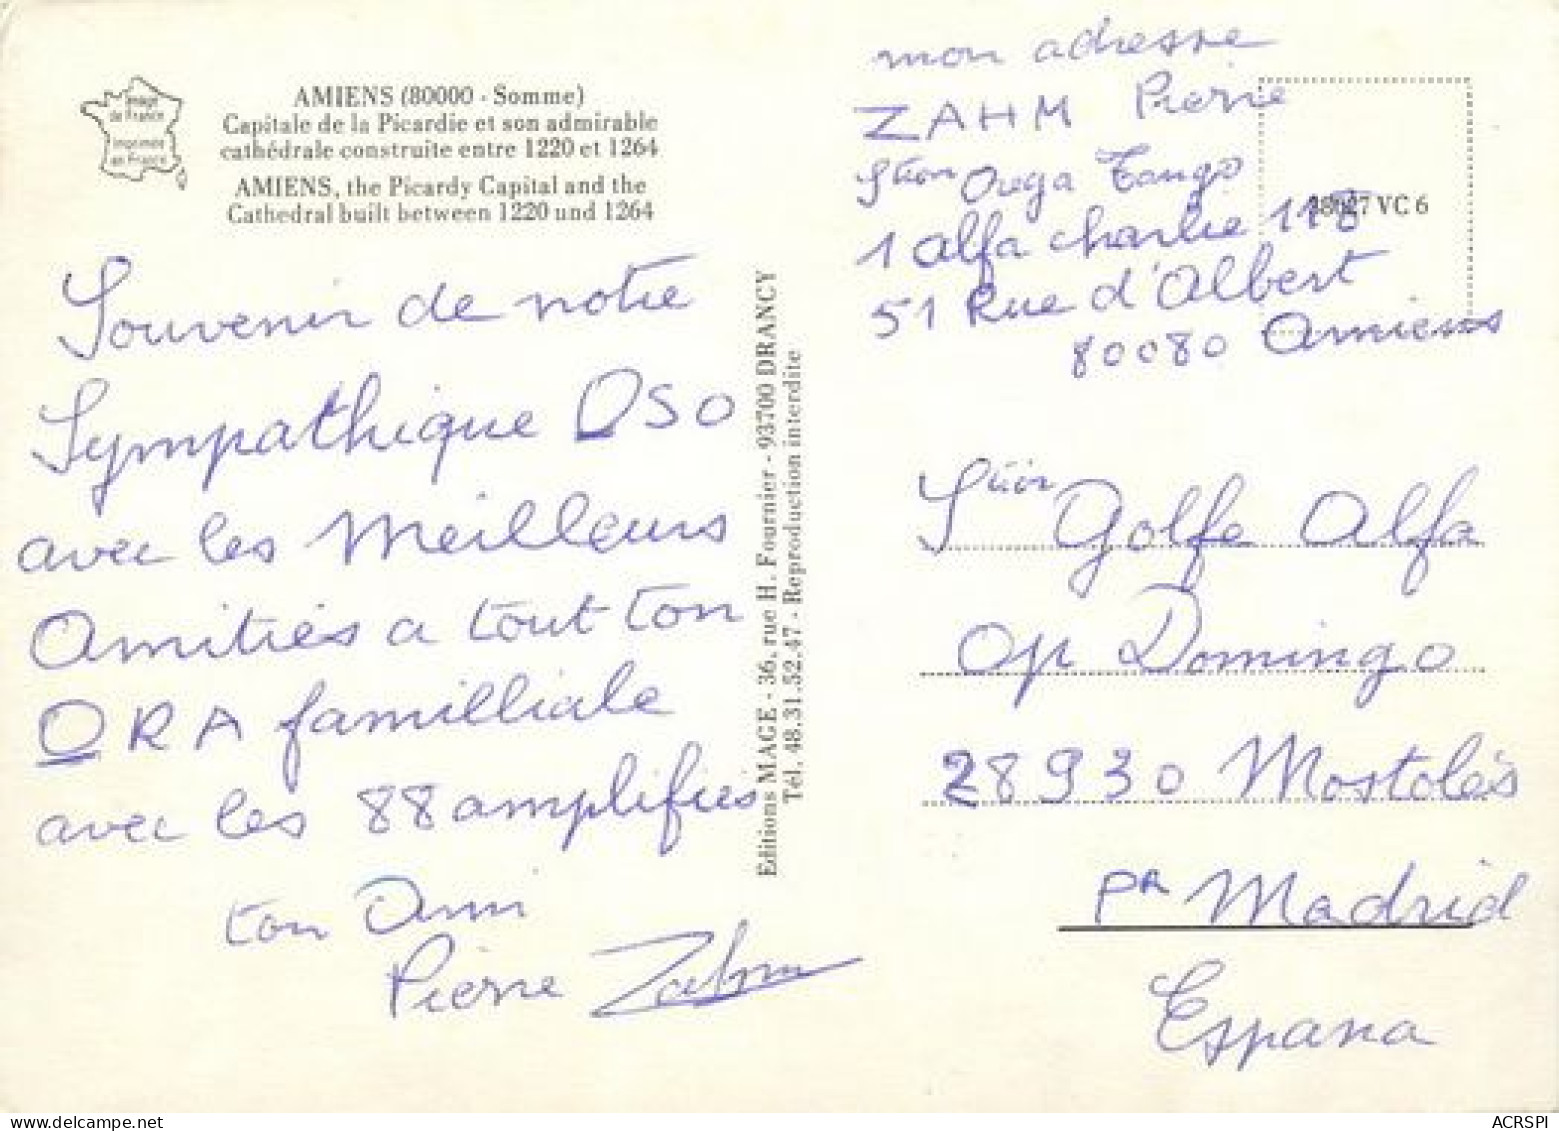 Image
de France
Imprimée
en France
AMIENS (80000 - Somme)
Capitale de la Picardie et son admirable
cathédrale construite entre 1220 et 1264
AMIENS, the Picardy Capital and the
Cathedral built between 1220 und 1264
Souvenir de notre
Sympathique QSO
avec les Meilleurs
Amitiés a tout ton
QRA familliale
avec les 88 amplifiés
ton Ami
Pierre Zahm
Editions MAGE - 36, rue H. Fournier - 93700 DRANCY
Tél. 48.31.52.47 - Reproduction interdite
mon adresse
ZAHM Pierre
Stion Tango
1 alfa charlie 118
51 Rue d'Albert
80080 Amiens
VC 6
Stion Golfe Alfa
Op Domingo
28930 Mostolés
Pr Madrid
Espana
ACRSPI